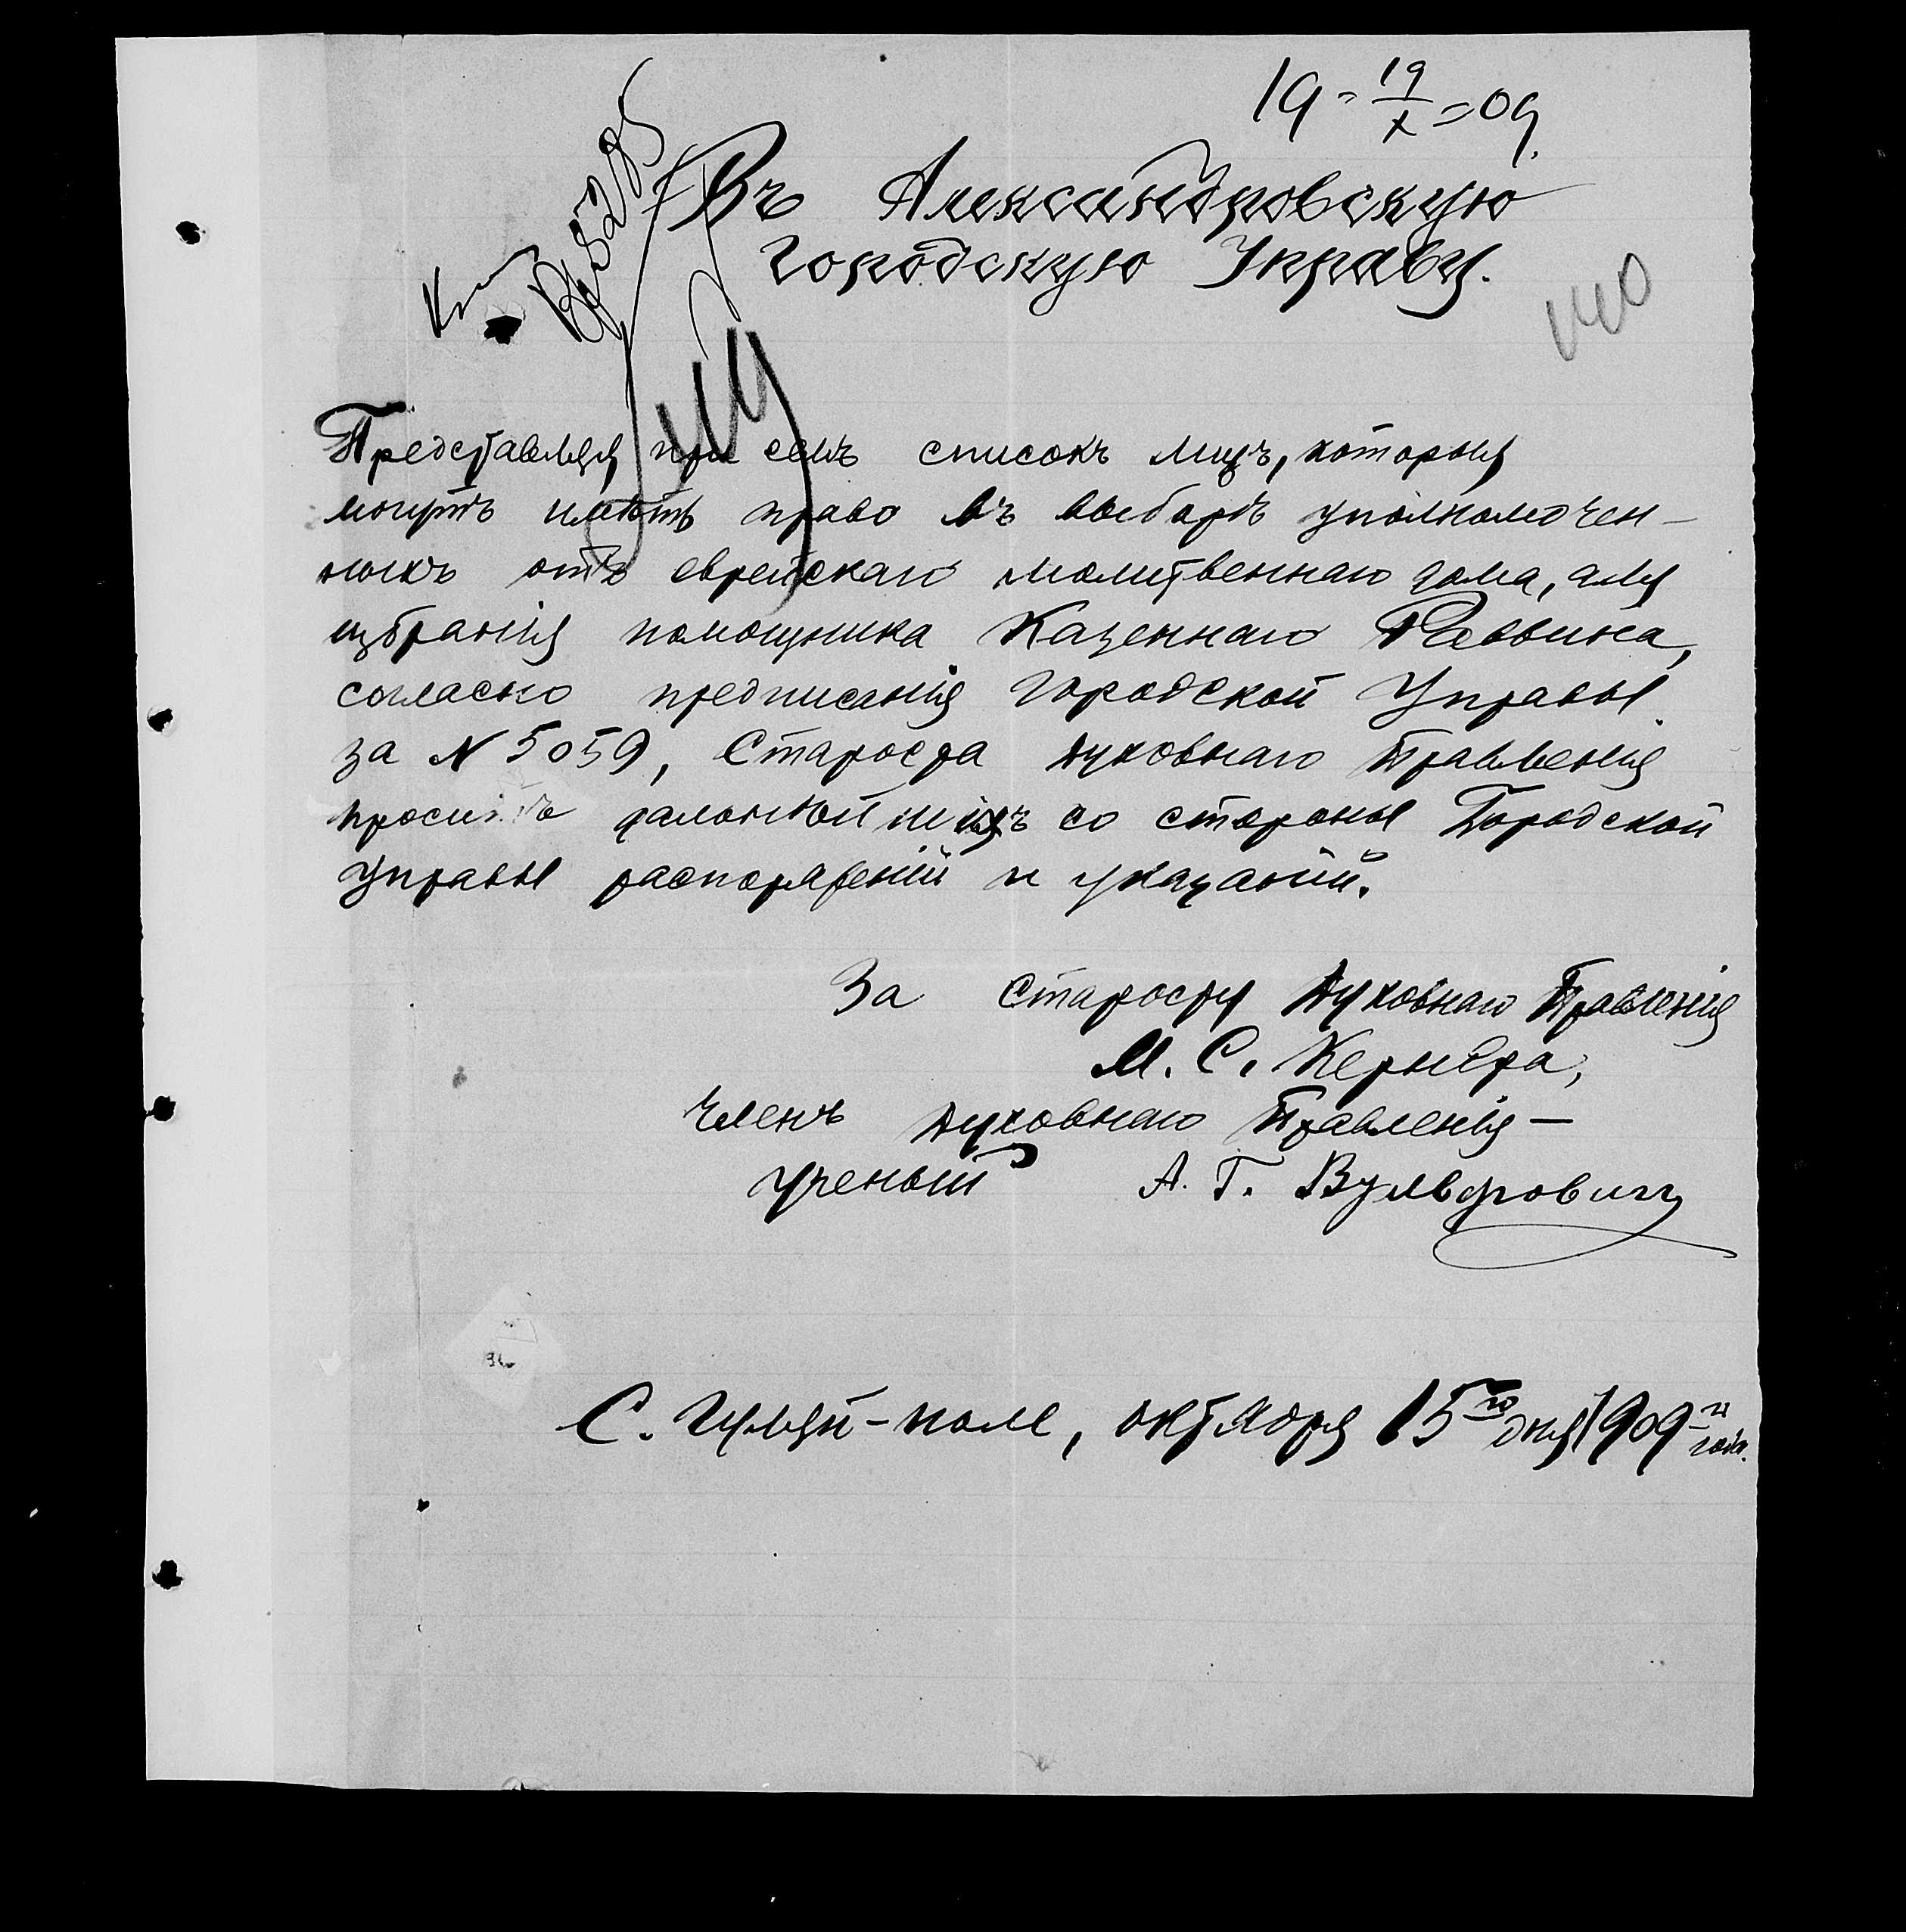 19 - 19/X - 09.
Въ Александровскую
Городскую Управу.
140
Представляя при семъ списокъ лицъ, которыя
могутъ имѣть право въ выборѣ уполномочен-
ныхъ отъ еврейскаго молитвеннаго дома, для
избранія помощника Казеннаго Раввина,
согласно предписанія Городской Управы
за N 5059, Староста Духовнаго Правленія
проситъ дальнѣйшихъ со стороны Городской
Управы распоряженій и указаній.
За Старосту Духовнаго Правленія
М. С. Кернера,
Членъ Духовнаго Правленія —
Ученый А. Г. Вульфовичъ
С. Гуляй-поле, октября 15го дня 1909г года.